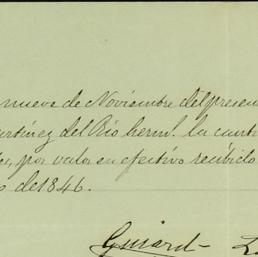 nueve de Noviembre del presen
artinez del Rio herm.s la canti
por valor en efectivo recibido
de 1846.
Guirard